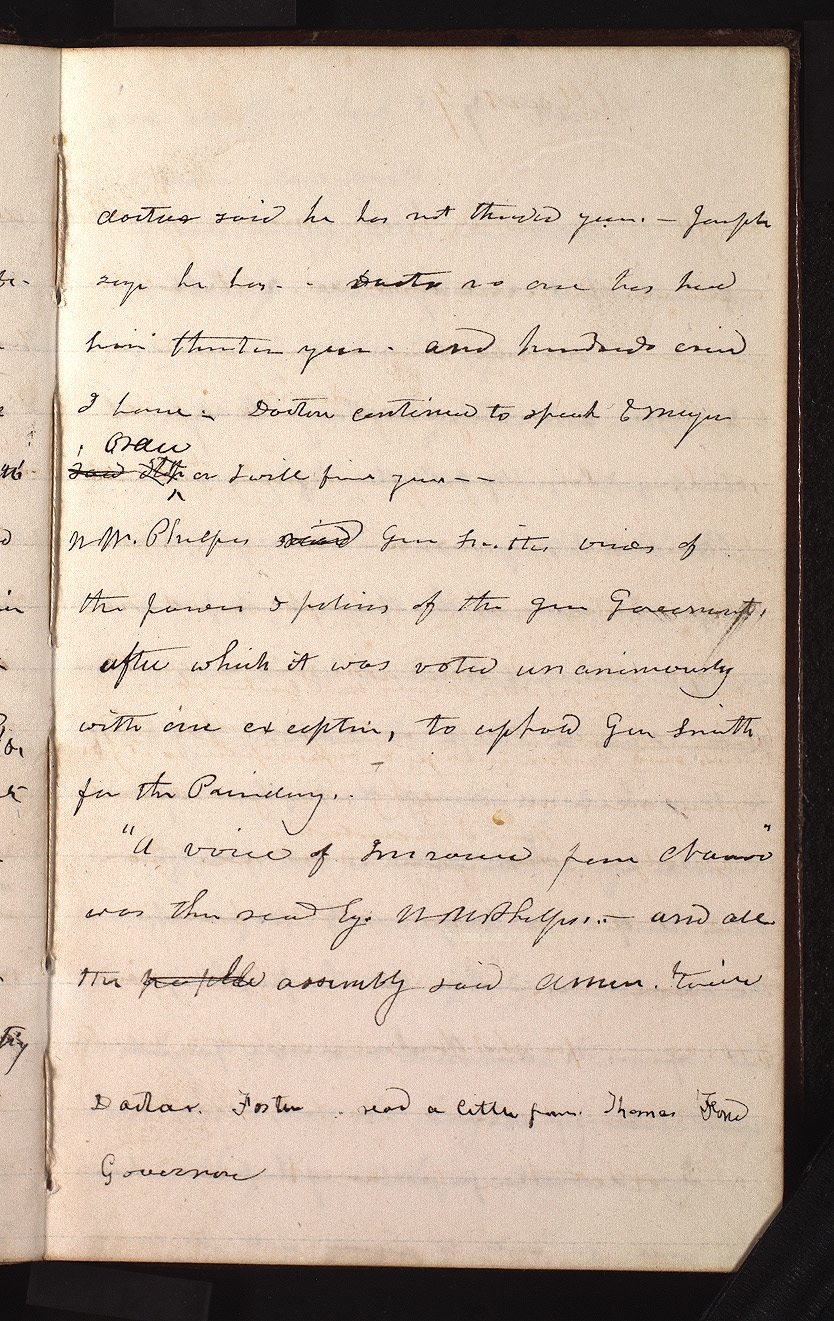 doctor said he has not threatend you. — Joseph
says he has. - Doctor no one has heard
him threaten you - and hundreds cried
I have. Doctor continued to speak & mayor
order
said stop or I will fine you - -
W. W. Phelps read Gen Smiths views of
the power & policy of the gen Government,
after which it was voted unanimously
with one exception, to uphold Gen Smith
for the Presidency.
"A voice of Innocence from Nauvoo"
was then read by W W Phelps. — and all
the people assembly said amen. twice
Doctor. Foster . read a letter from. Thomas Ford
Governor